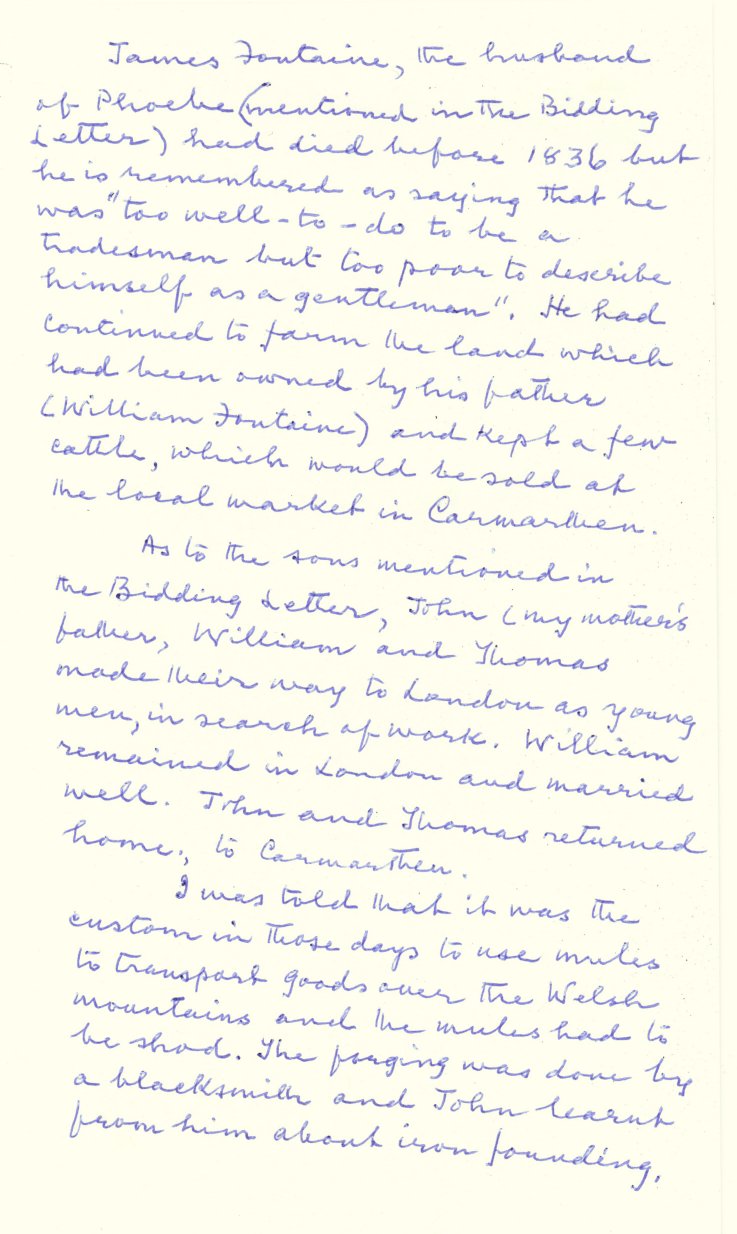 James Fontaine, the husband
of Phoebe (mentioned in the Bidding
Letter) had died before 1836 but
he is remembered as saying that he
was "too well-to-do to be a
tradesman but too poor to describe
himself as a gentleman". He had
continued to farm the land which
had been owned by his father
(William Fontaine) and kept a few
cattle, which would be sold at
the local market in Carmarthen.
As to the sons mentioned in
the Bidding Letter, John (my mother's
father, William and Thomas
made their way to London as young
men, in search of work. William
remained in London and married
well. John and Thomas returned
home., to Carmarthen.
I was told that it was the
custom in those days to use mules
to transport goods over the Welsh
mountains and the mules had to
be shod. The forging was done by
a blacksmith and John learnt
from him about iron founding.